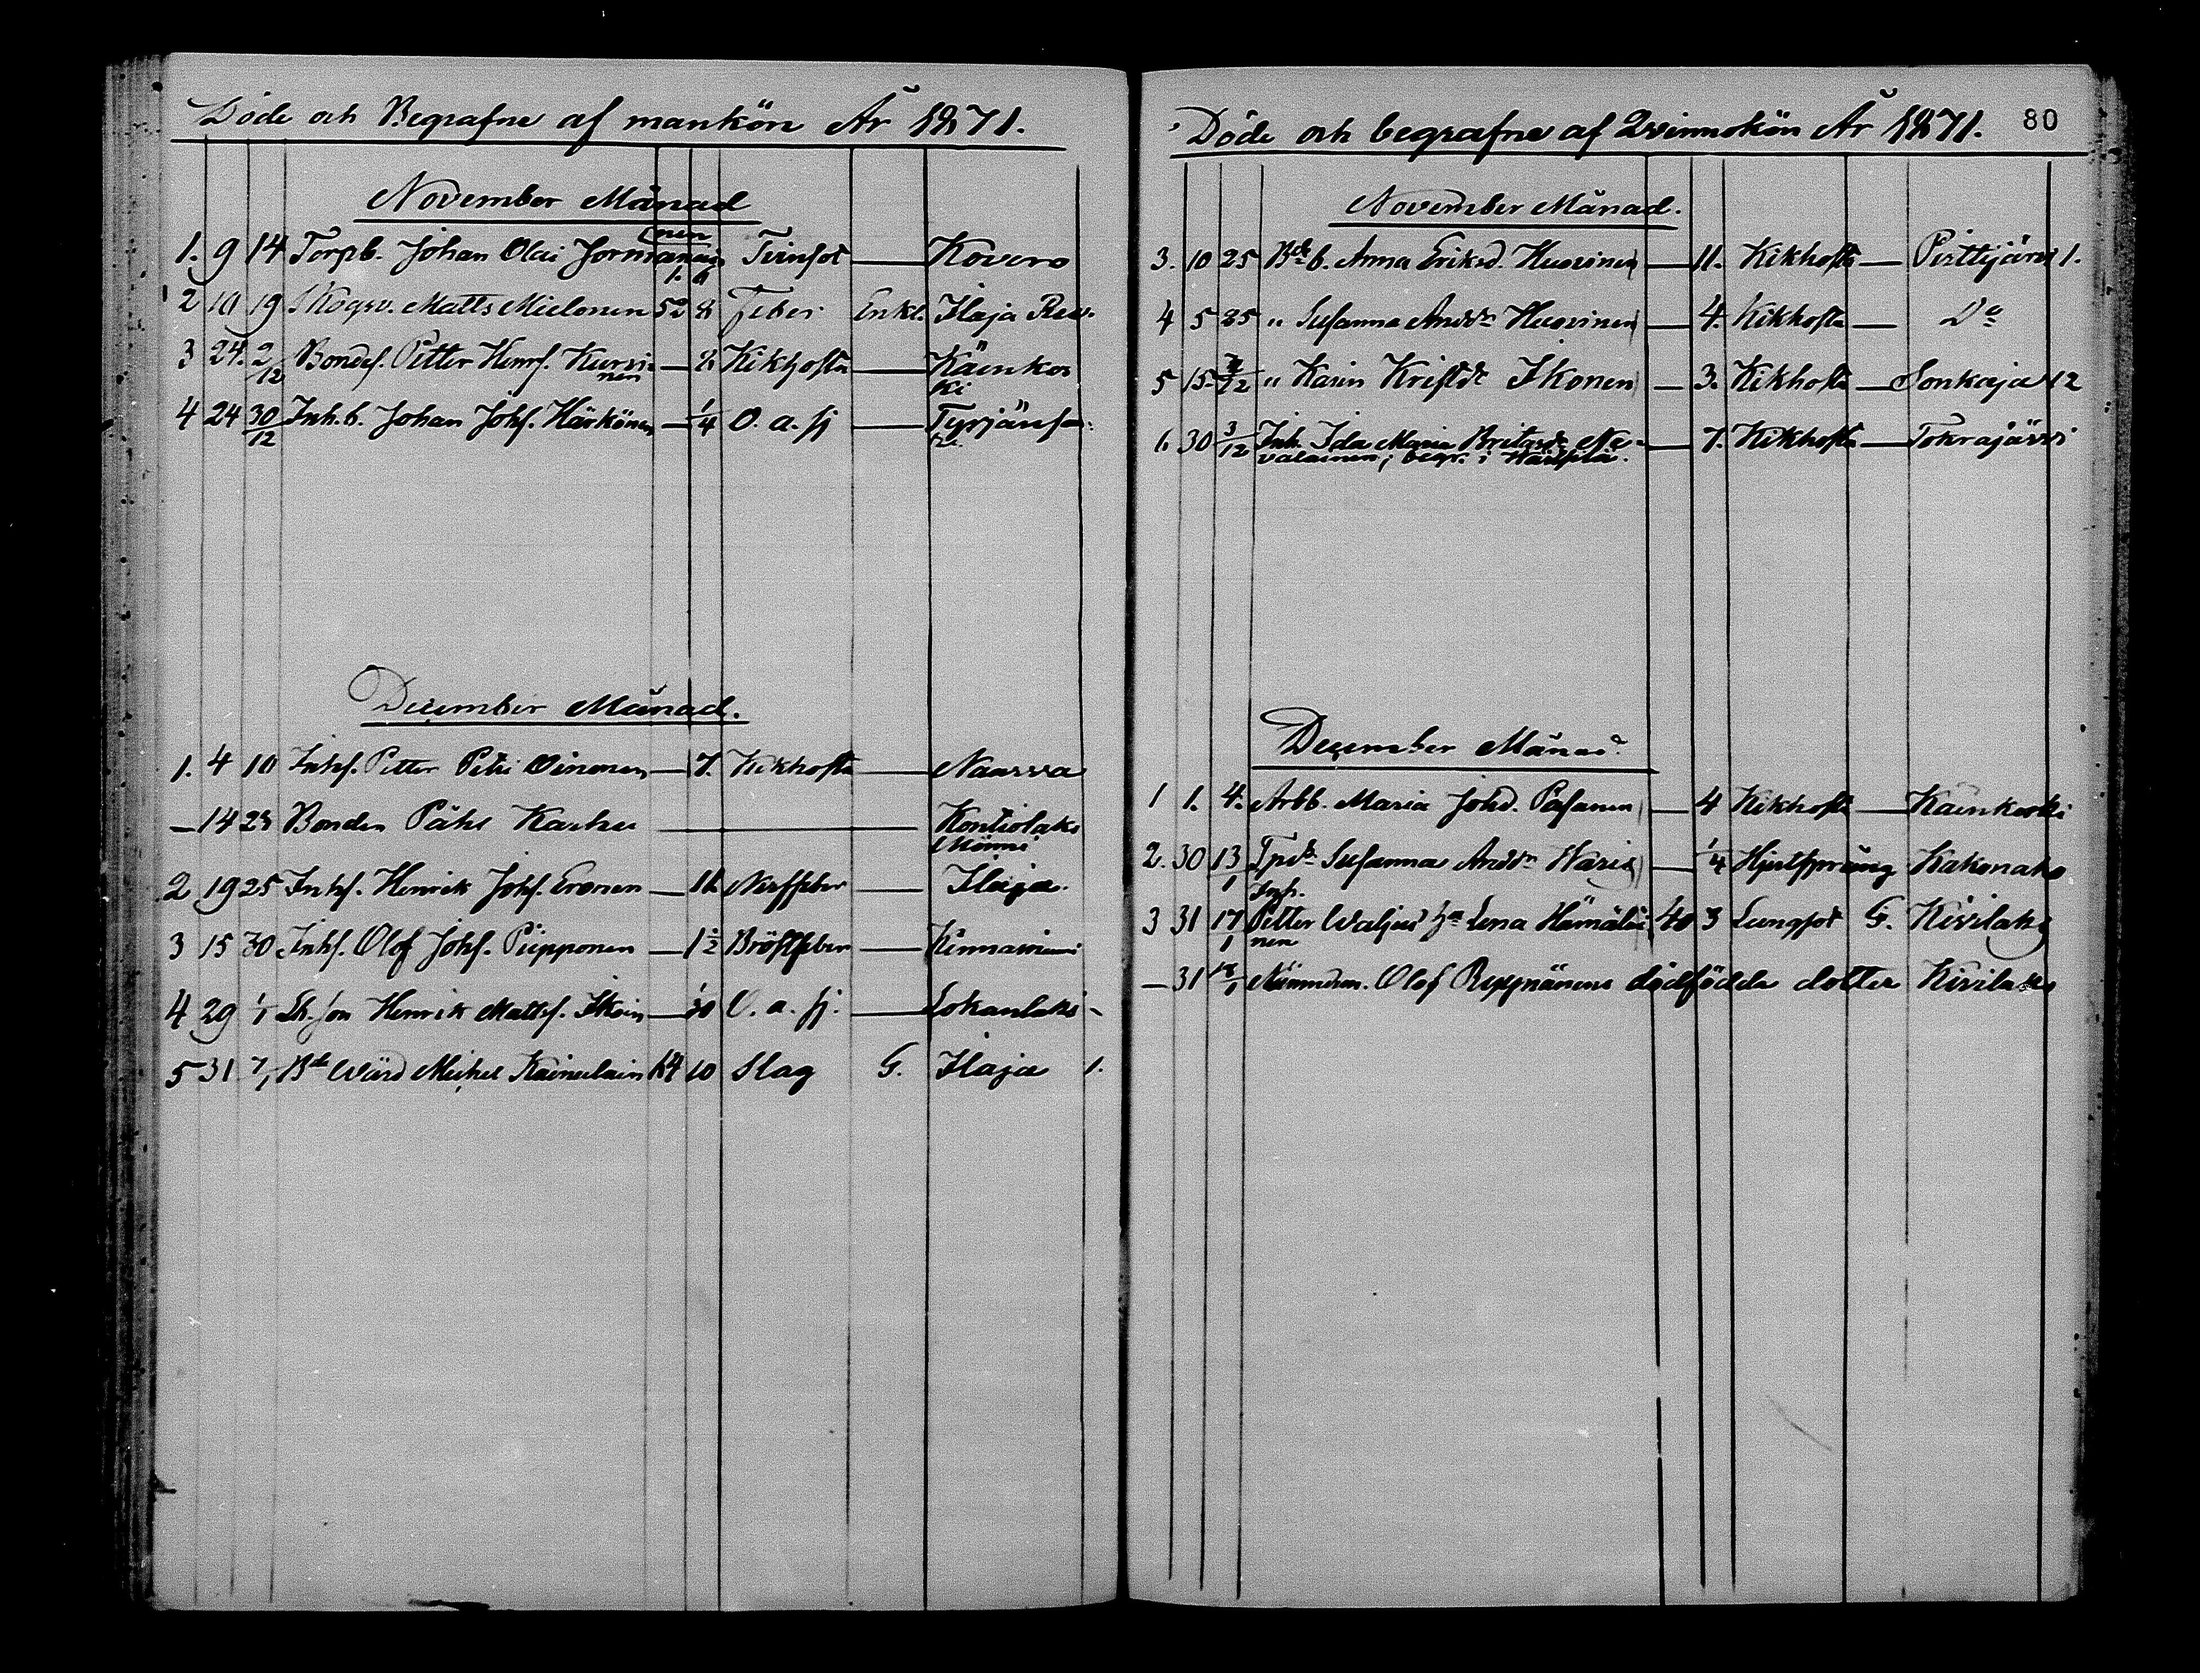 Döde och Begrafne af mankön År 1871.
November Månad
1. 9 14 Torpb. Johan Olai Jormanain nen 1. 6 Tvinsot — Kovero
2 10 19 Skogv. Matts Mielonen 52 8 Feber Enkl. Ilaja Rev.
3 24. 2/12 Bondes. Petter Henrs. Kurvi- — 8. Kikhosta — Käenkos
nen ki
4 24 30/12 Inh. b. Johan Johs. Härkönen — 1/4 O. a. sj — Tyrjänsa-
December Månad.
1. 4 10 Inhs. Petter Petri Oinonen — 7. Kikhosta — Naarva
— 14 23 Bonden Påhl Karhu — Kontiolaks
Mönni
2 19 25 Inhs. Henrik Johs. Eronen — 11. Nerffeber — Ilaja.
3 15 30 Inhs. Olof Johs. Piipponen — 1 1/2 Bröstfeber — Kinnasniemi
4 29 1/1 Lh. son Henrik Matts. Ikoin — 1/30 O. a. sj. — Lokanlaks
5 31 7/1 Bde Värd Michel Kainulain 64 10 Slag G. Ilaja 1.
Döde och begrafne af Qvinnokön År 1871. 80
November Månad.
3. 10 25 Bde b. Anna Eriksd. Huovinen — 11. Kikhosta — Pirttijärvi 1.
4 5 25 " Susanna Andsdr Huovinen — 4. Kikhosta — Do
5 15 2/12 " Karin Kristdr Ikonen — 3. Kikhosta — Sonkaja 12
6. 30 3/12 Inh. Ida Maria Britasdr Ne- — 7. Kikhosta — Tokrajärvi
valainen, begr. i Wärtsilä.
December Månad.
1 1. 4. Arbb. Maria Johd. Pasanen — 4 Kikhosta — Käenkoski
2. 30 13/1 Tpdr Susanna Andsdr Waris — 1/4 Hjertsprång Kakonaho
Inh.
3 31 17/1 Petter Waljus hu Lena Hämäläi 40 3 Lungsot G. Kivilaks
nen
— 31 18/1 Nämndem. Olof Reppnänens dödfödda dotter Kivilaks